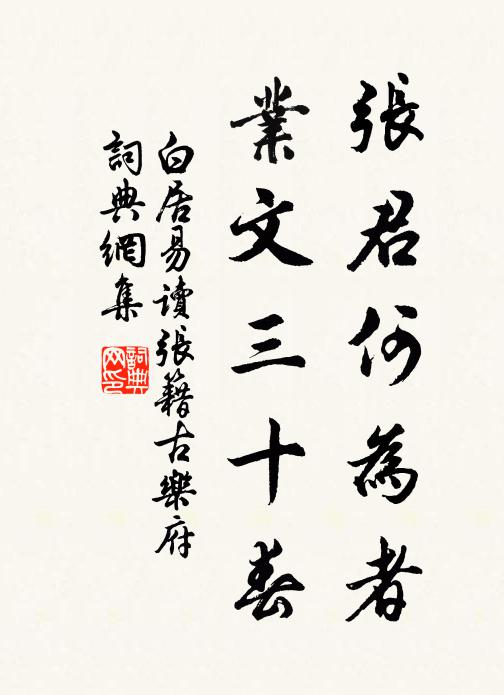 張君何為者
業文三十春
白居易讀張籍古樂府
詞典網集
詞典
网印